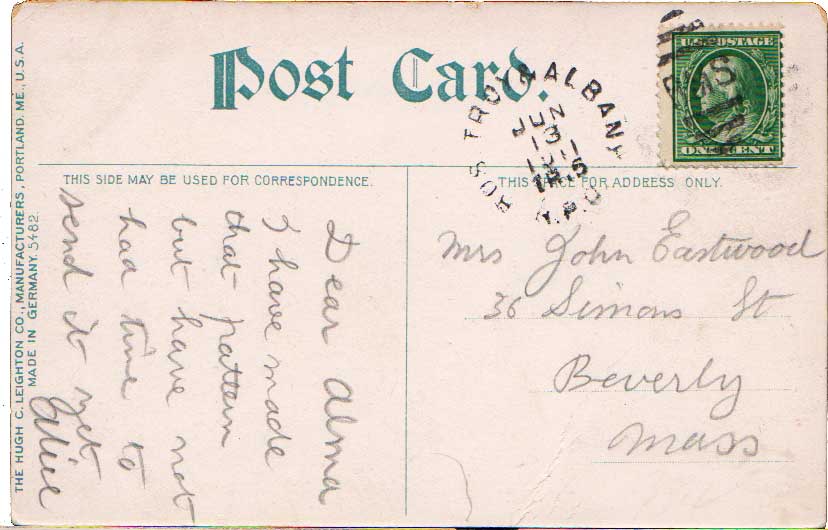 Post Card.
THIS SIDE MAY BE USED FOR CORRESPONDENCE.
THIS SPACE FOR ADDRESS ONLY.
U.S. POSTAGE
ONE CENT
BOS TROY & ALBANY
JUN
13
R.P.O
Dear Alma
I have made
that pattern
but have not
had time to
send it yet
Alice
Mrs John Eastwood
36 Simons St
Beverly
Mass
THE HUGH C. LEIGHTON CO., MANUFACTURERS, PORTLAND, ME., U.S.A.
MADE IN GERMANY. 5482.